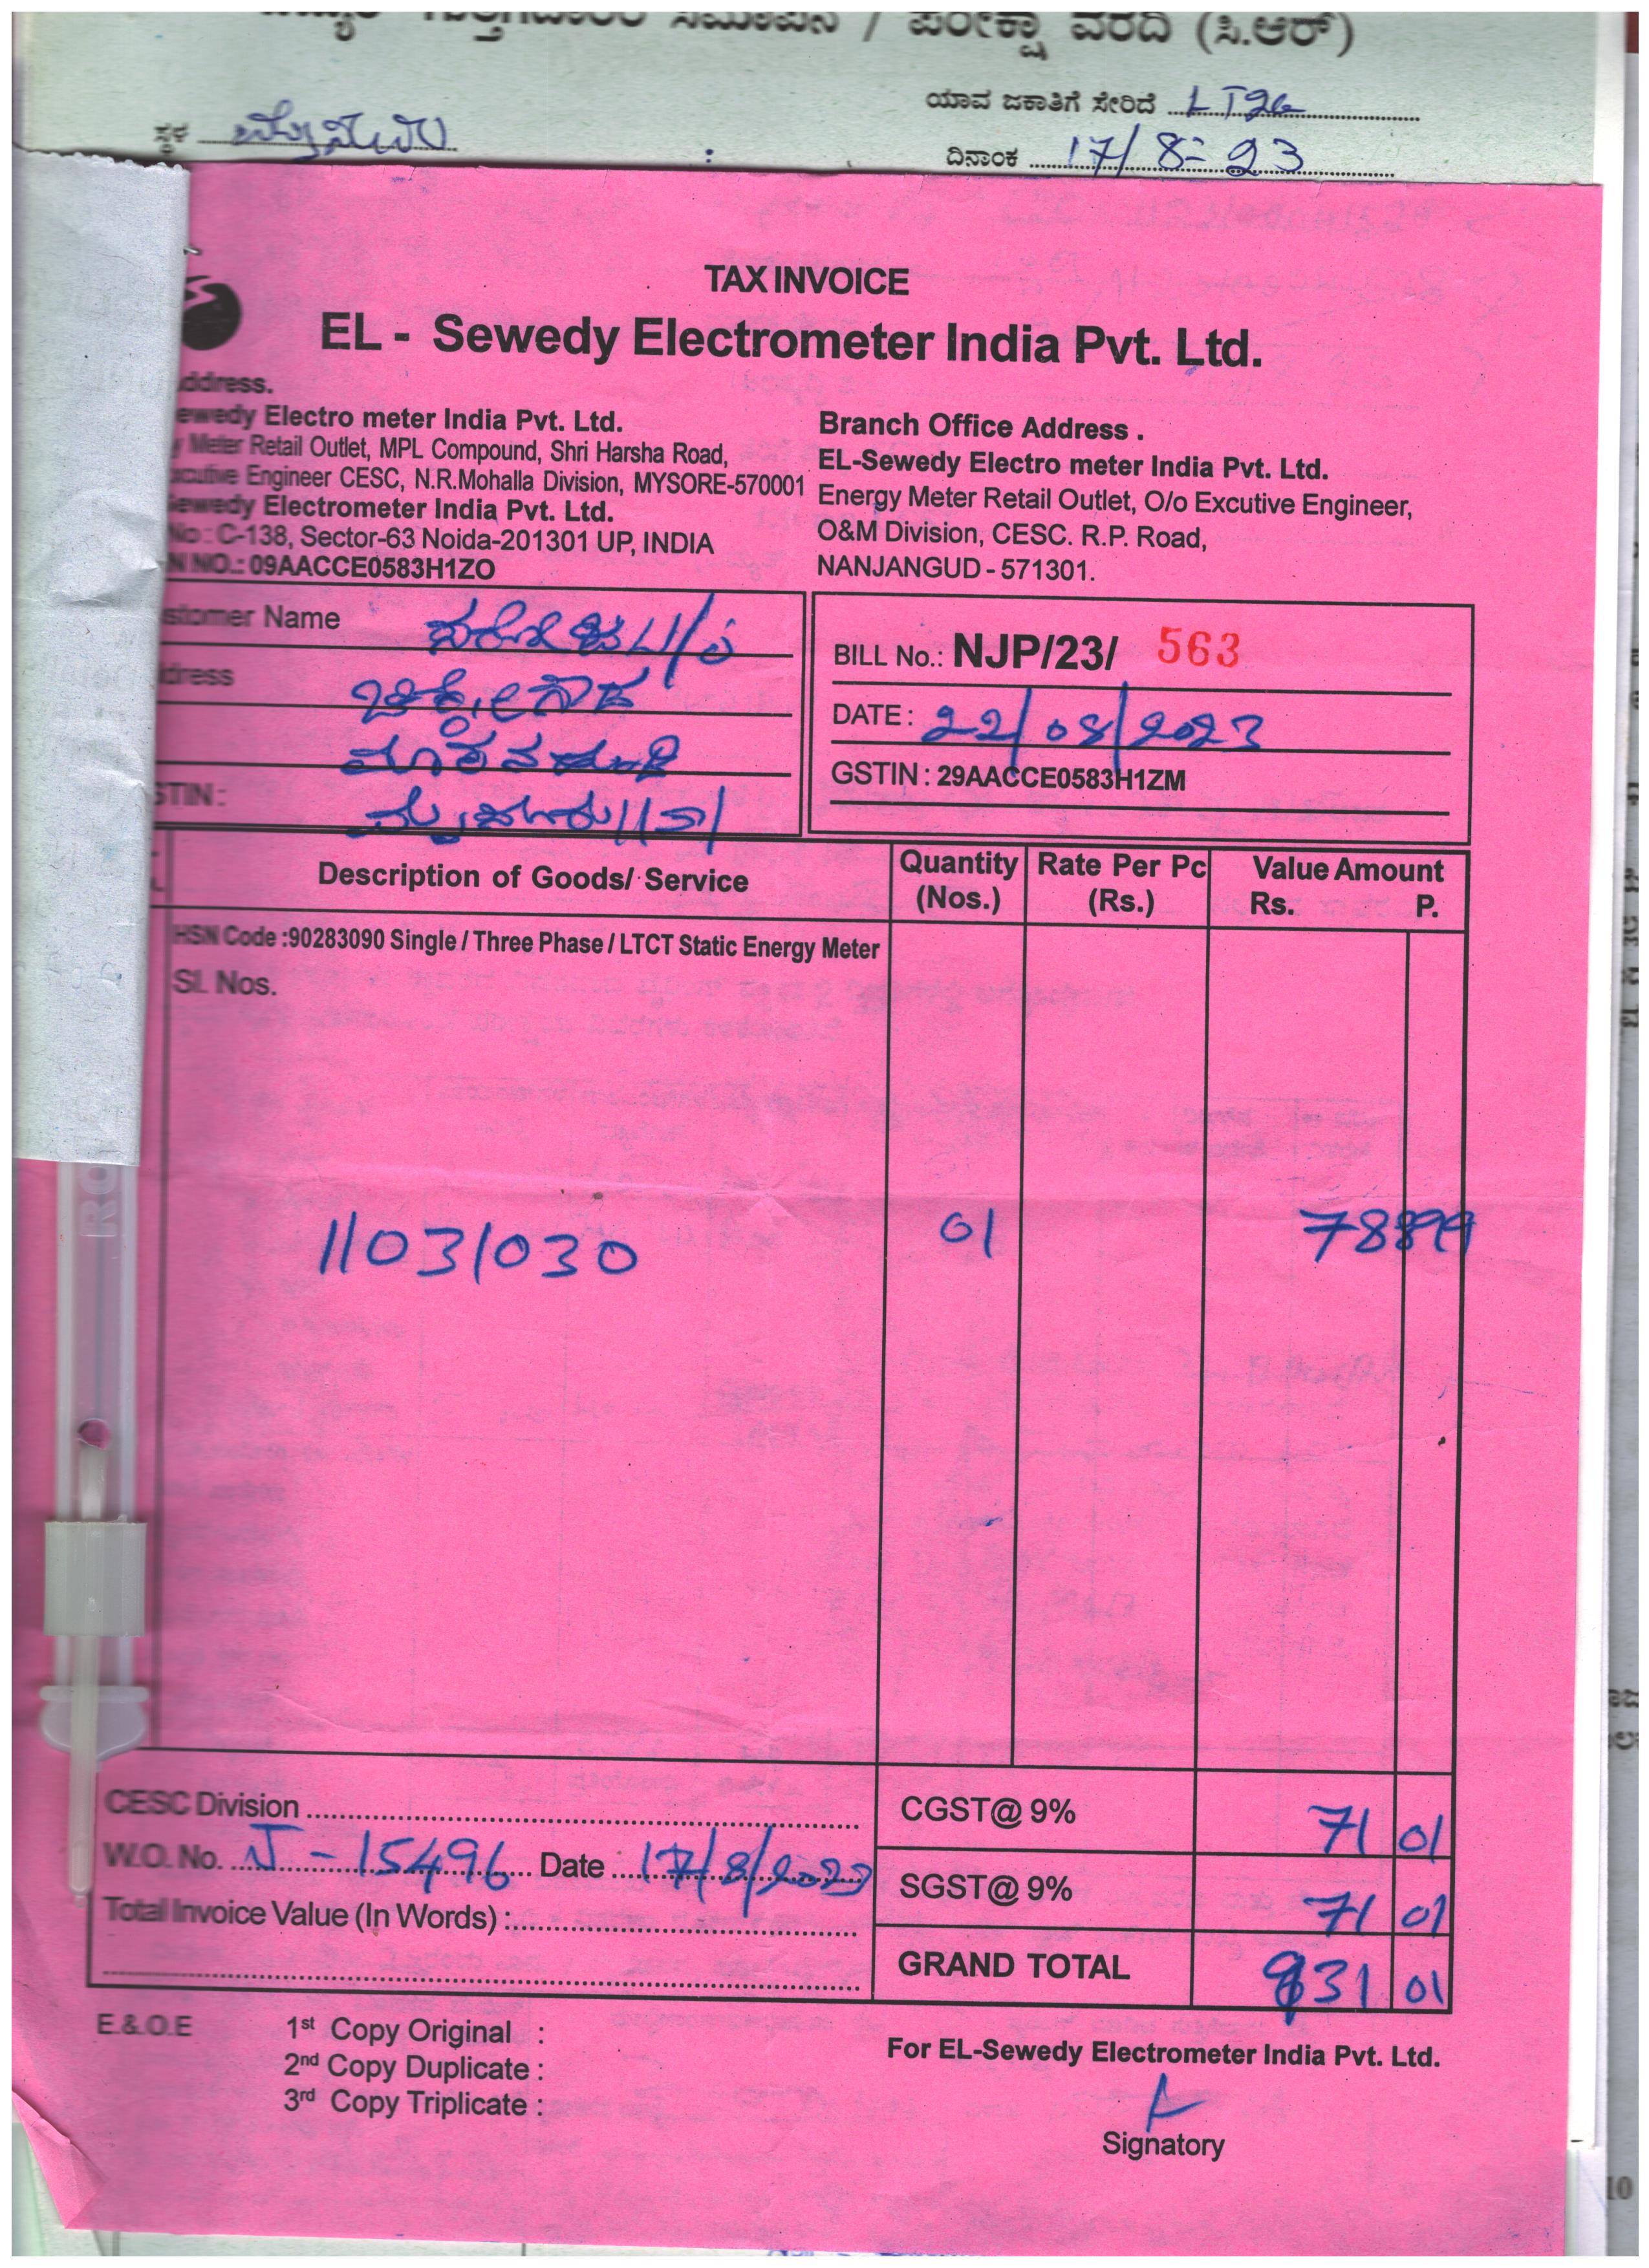 ಯಾವ ಜಕಾತಿಗೆ ಸೇರಿದೆ LT2a
ಸ್ಥಳ
ದಿನಾಂಕ 17/8-23
TAX INVOICE
EL - Sewedy Electrometer India Pvt. Ltd.
ddress.
ewedy Electro meter India Pvt. Ltd.
y Meter Retail Outlet, MPL Compound, Shri Harsha Road,
xcutive Engineer CESC, N.R.Mohalla Division, MYSORE-570001
Sewedy Electrometer India Pvt. Ltd.
No : C-138, Sector-63 Noida-201301 UP, INDIA
N NO.: 09AACCE0583H1ZO
Branch Office Address .
EL-Sewedy Electro meter India Pvt. Ltd.
Energy Meter Retail Outlet, O/o Excutive Engineer,
O&M Division, CESC. R.P. Road,
NANJANGUD - 571301.
stomer Name
dress
STIN :
BILL No.: NJP/23/ 563
DATE : 22/08/2023
GSTIN : 29AACCE0583H1ZM
Description of Goods/ Service Quantity (Nos.) Rate Per Pc (Rs.) Value Amount Rs. P.
HSN Code :90283090 Single / Three Phase / LTCT Static Energy Meter
Sl. Nos.
11031030 01 78899
CESC Division
CGST@ 9% 71 01
W.O. No. J-15496 Date 17/8/2023
SGST@ 9% 71 01
Total Invoice Value (In Words) :
GRAND TOTAL 931 01
E.&.O.E
1st Copy Original :
2nd Copy Duplicate :
3rd Copy Triplicate :
For EL-Sewedy Electrometer India Pvt. Ltd.
Signatory